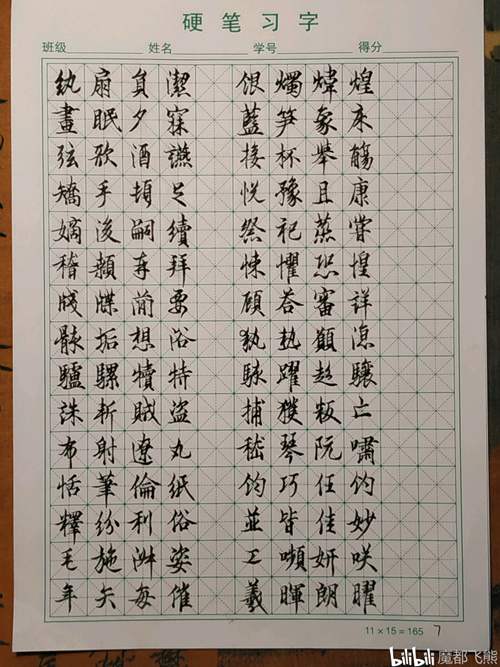 硬笔习字
班级 姓名 学号 得分
紈扇員潔 銀燭煒煌
晝眠夕寐 藍笋象床
弦歌酒讌 接杯舉觴
矯手頓足 悅豫且康
嫡後嗣續 祭祀蒸嘗
稽顙再拜 悚懼恐惶
牋牒簡要 顧答審詳
骸垢想浴 執熱願涼
驢騾犢特 駭躍超驤
誅斬賊盜 捕獲叛亡
布射遼丸 嵇琴阮嘯
恬筆倫紙 鈞巧任釣
釋紛利俗 並皆佳妙
毛施淑姿 工嚬妍咲
年矢每催 羲暉朗曜
11×15=165 7
bilibili 魔都飞熊